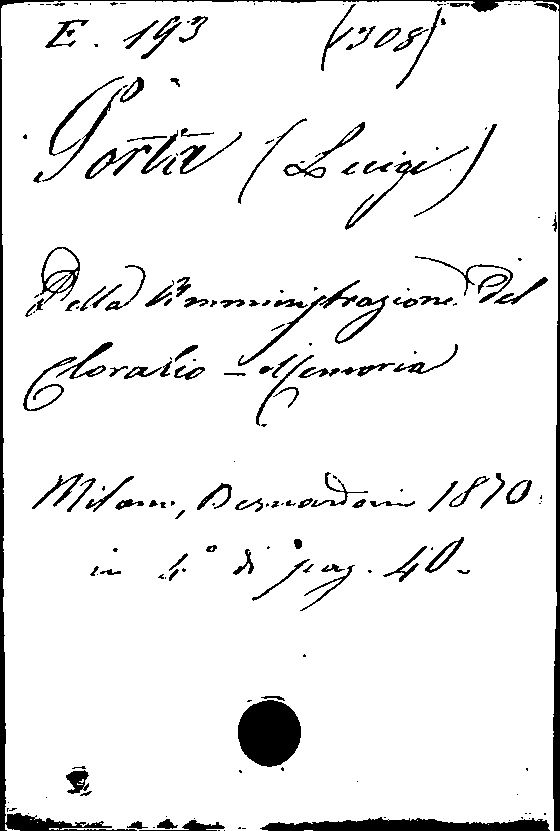 E. 193 (1308)
Porta (Luigi)
Della Amministrazione del
Cloralio - Memoria
Milano, Bernardoni 1870
in 4° di pag. 40.